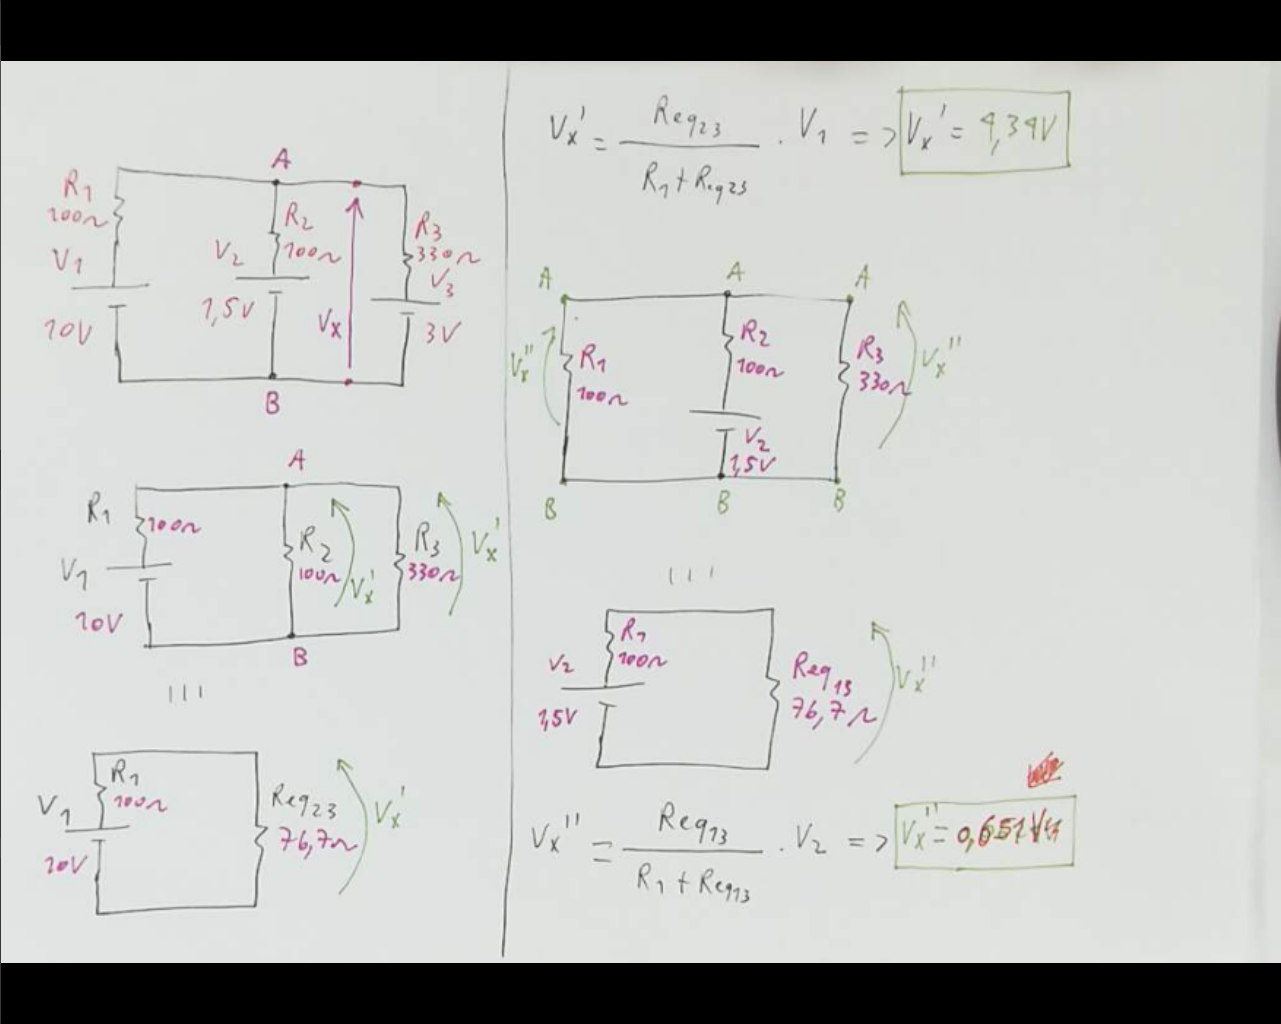 A
R1
100Ω
V1
10V
R2
100Ω
V2
1,5V
Vx
R3
330Ω
V3
3V
B
A
R1
100Ω
V1
10V
R2
100Ω
Vx'
R3
330Ω
Vx'
B
|||
R1
100Ω
V1
10V
Req23
76,7Ω
Vx'
Vx' = Req23 / (R1 + Req23) · V1 => Vx' = 4,34V
A A A
Vx''
R1
100Ω
R2
100Ω
V2
1,5V
R3
330Ω
Vx''
B B B
|||
R1
100Ω
V2
1,5V
Req13
76,7Ω
Vx''
Vx'' = Req13 / (R1 + Req13) · V2 => Vx'' = 0,651V